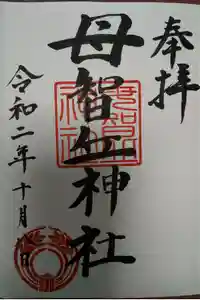 奉拝
母智丘神社
令和二年十月日